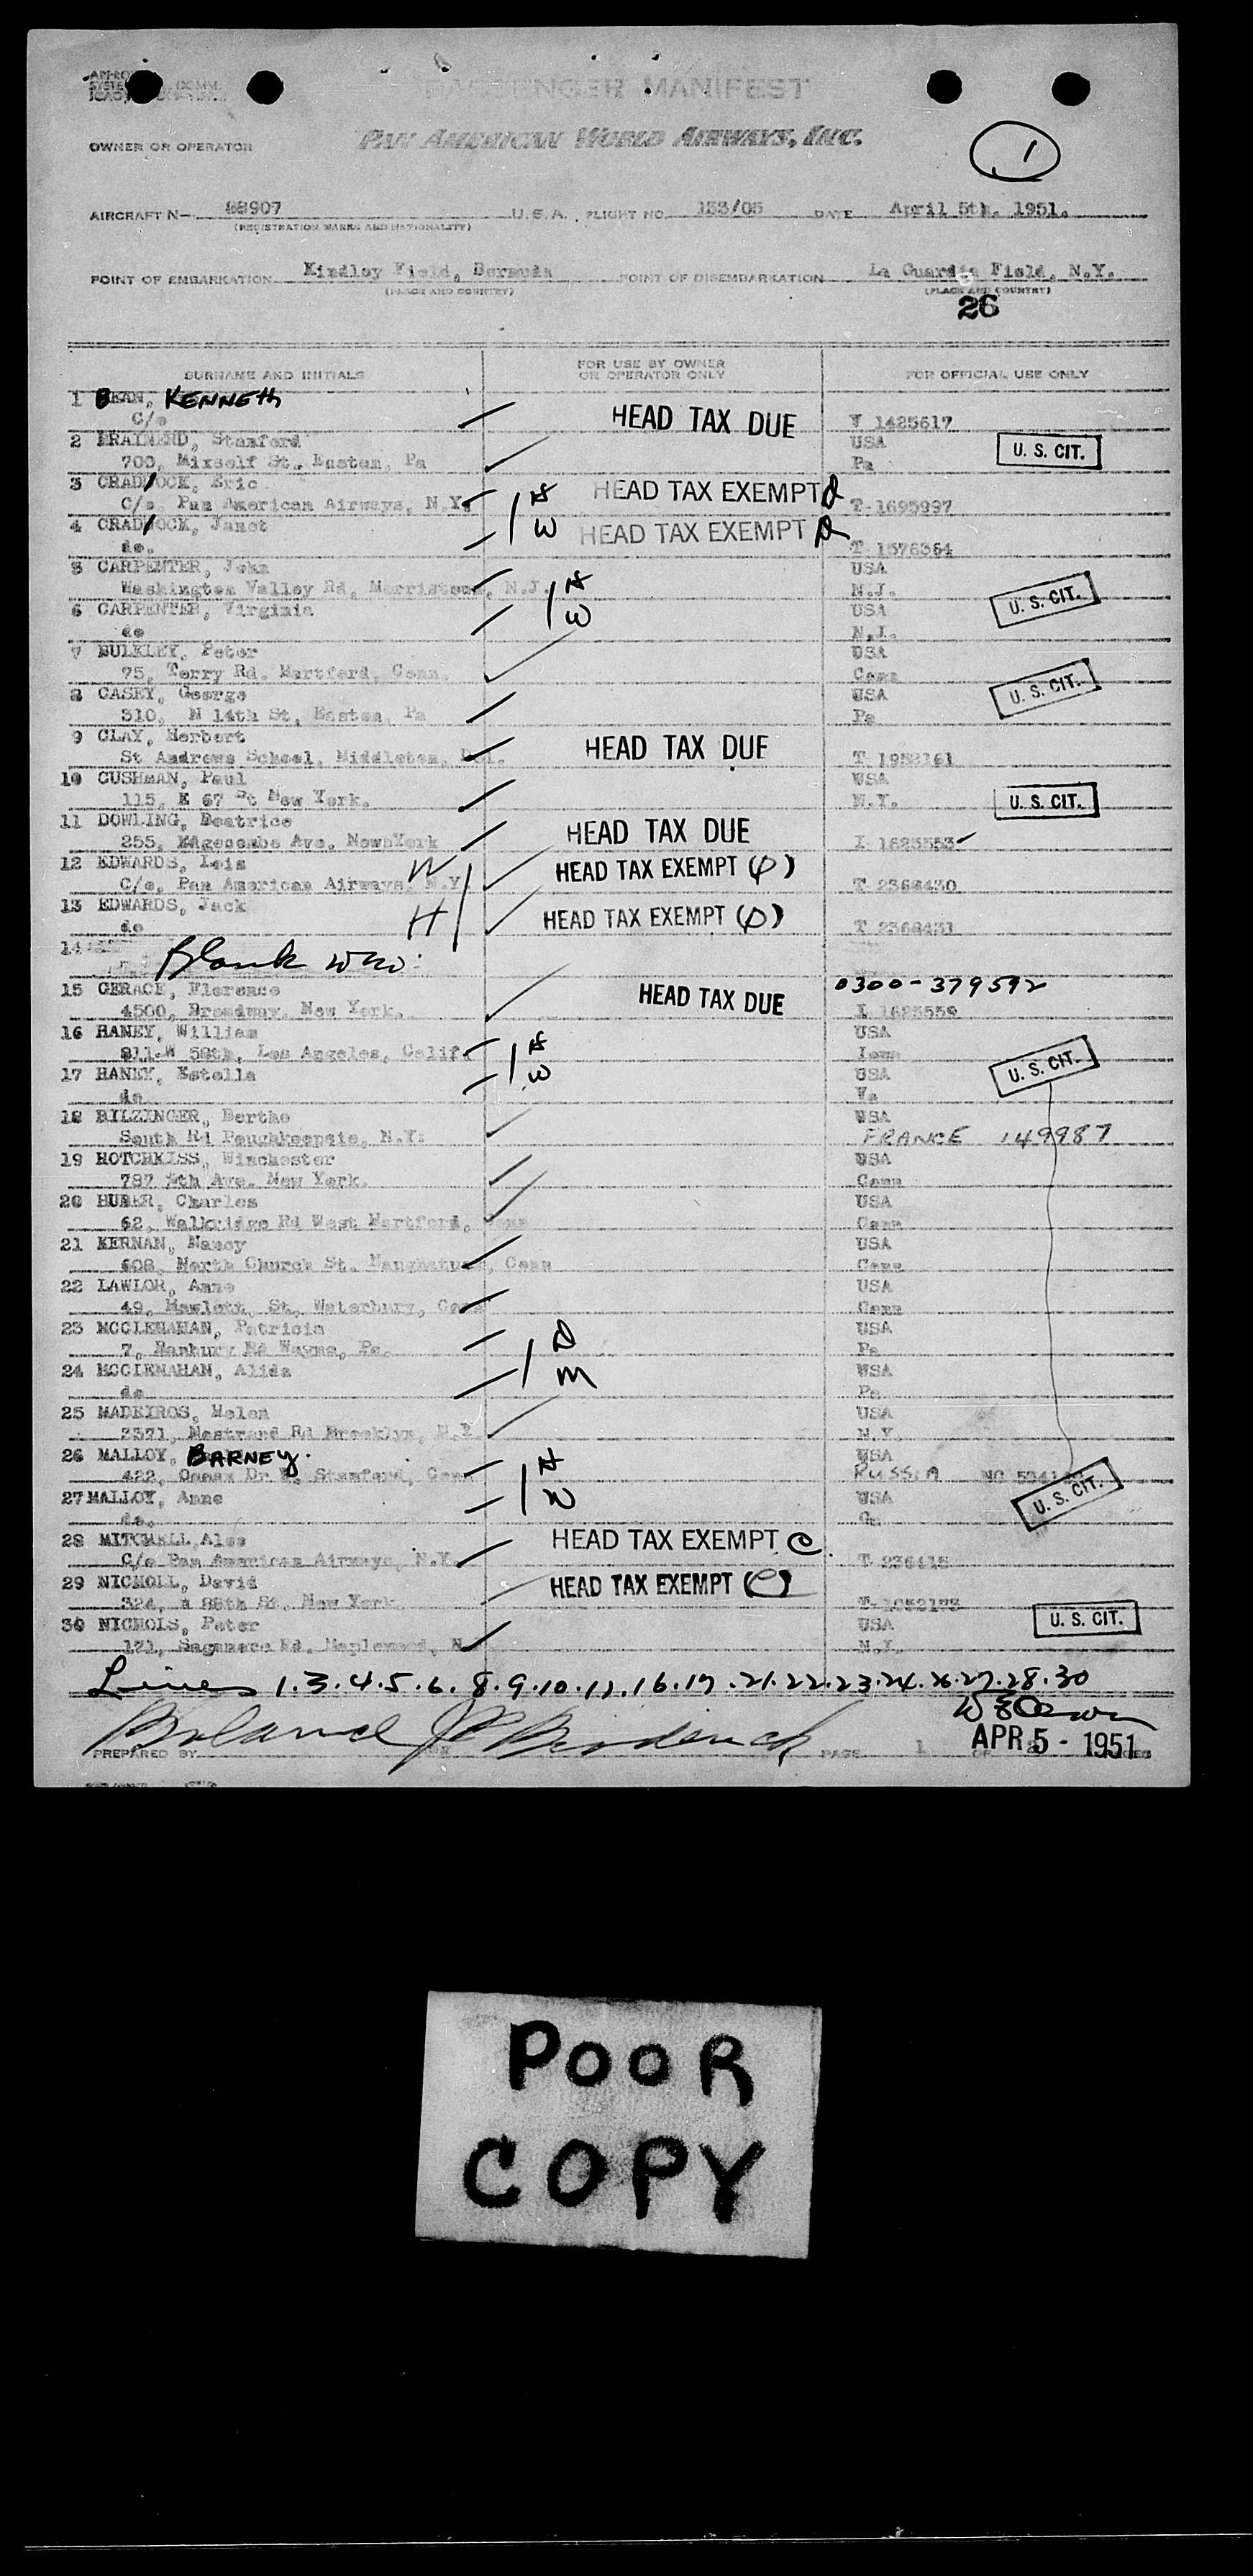 PASSENGER MANIFEST
OWNER OR OPERATOR PAN AMERICAN WORLD AIRWAYS, INC. 1
AIRCRAFT N— 88907 U.S.A. FLIGHT NO. 153/05 DATE April 5th. 1951.
(REGISTRATION MARKS AND NATIONALITY)
POINT OF EMBARKATION Kindley Field, Bermuda POINT OF DISEMBARKATION La Guardia Field, N.Y.
(PLACE AND COUNTRY) (PLACE AND COUNTRY)
26
SURNAME AND INITIALS FOR USE BY OWNER OR OPERATOR ONLY FOR OFFICIAL USE ONLY
1 BEAN, KENNEth
C/o HEAD TAX DUE V 1425617
2 BRAINERD, Stanford USA U. S. CIT.
700, St., Easton, Pa Pa
3 CRADDOCK, Eric HEAD TAX EXEMPT
C/o Pan American Airways, N.Y. H T 1695997
4 CRADDOCK, Janet W HEAD TAX EXEMPT
do. T 1576364
5 CARPENTER, John USA
Washington Valley Rd, Morristown, N.J. H N.J. U. S. CIT.
6 CARPENTER, Virginia W USA
do N.J.
7 BULKLEY, Peter USA
75, Terry Rd. Hartford, Conn. Conn
8 CASEY, George USA U. S. CIT.
310, N 14th St, Easton, Pa Pa
9 CLAY, Herbert HEAD TAX DUE
St Andrews School, Middleton, Del. T 1952161
10 CUSHMAN, Paul USA
115, E 67 St New York. N.Y. U. S. CIT.
11 DOWLING, Beatrice HEAD TAX DUE
255, Edgecombe Ave, NewnYork I 1625553
12 EDWARDS, Lois W HEAD TAX EXEMPT
C/o, Pan American Airways, N.Y T 2368430
13 EDWARDS, Jack H HEAD TAX EXEMPT
do T 2368431
14 Blank
15 GERACE, Florence HEAD TAX DUE 0300-379592
4500, Broadway, New York. I 1625559
16 HANEY, William H USA
911 W 50th, Los Angeles, Calif. Iowa
17 HANEY, Estella W USA U. S. CIT.
do Va
18 HILZINGER, Berthe USA
South Rd Poughkeepsie, N.Y. FRANCE 149987
19 HOTCHKISS, Winchester USA
787 5th Ave. New York. Conn
20 HUBER, Charles USA
62, Walkridge Rd West Hartford, Conn Conn
21 KERNAN, Nancy USA
608, North Church St. Naughatuck, Conn Conn
22 LAWLOR, Anne USA
49, Hewlett, St, Waterbury, Conn Conn
23 MCCLENAHAN, Patricia D USA
7, Banbury Rd Wayne, Pa. Pa
24 MCCLENAHAN, Alida M USA
do Pa
25 MADEIROS, Helen USA
2571, Nostrand Rd Brooklyn, N.Y N.Y.
26 MALLOY, BARNEY. H USA
422, Dr Stamford, Conn RUSSIA
27 MALLOY, Anne W USA U. S. CIT.
do.
28 MITCHELL, Alec HEAD TAX EXEMPT C
C/o Pan American Airways, N.Y. T 236415
29 NICHOLL, David HEAD TAX EXEMPT (C)
324, 88th St. New York. T 1052173
30 NICHOLS, Peter USA U. S. CIT.
121, Sagamore Rd. Maplewood, N. N.J.
Lines 1.3.4.5.6.8.9.10.11.16.17.21.22.23.24.26.27.28.30
PREPARED BY PAGE 1 OF PAGES
APR 5 - 1951
POOR
COPY